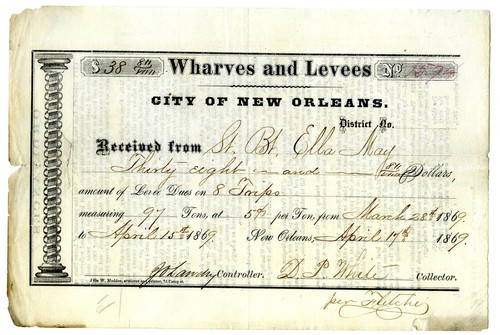 $ 38 80/100 Wharves and Levees No.
CITY OF NEW ORLEANS.
District No.
Received from St. Bt. Ella May
Thirty eight and 80/100 Dollars,
amount of Levee Dues on 8 Trips
measuring 97 Tons, at 5cts per Ton, from March 28th 1869
to April 15th 1869. New Orleans, April 17th 1869.
Landry Controller. D. P. White Collector.
per Fletcher